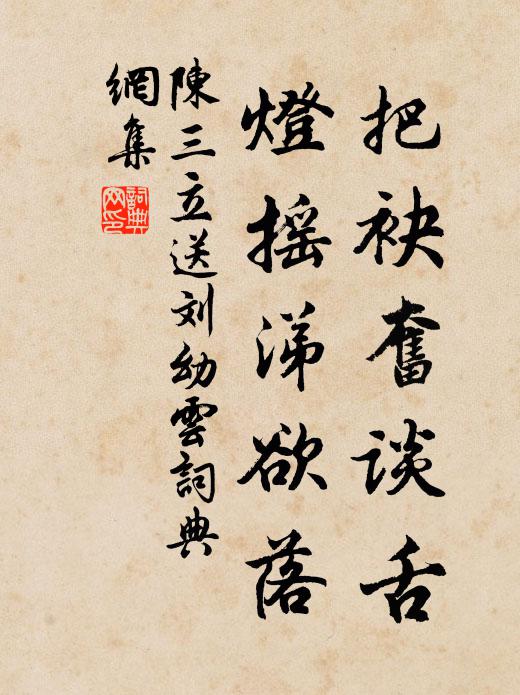 把袂奮談舌
燈摇涕欲落
陳三立送刘幼雲詞典
網集
詞典网印